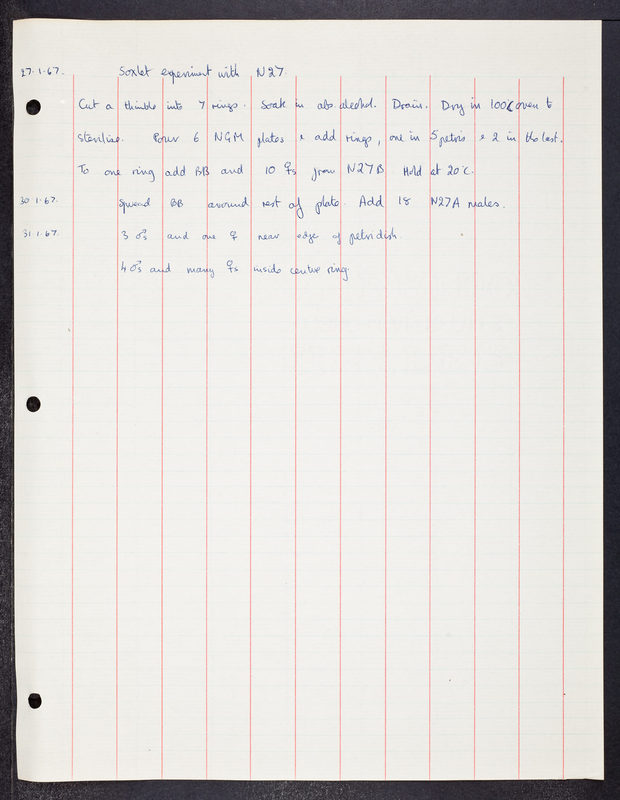 27.1.67. Soxlet experiment with N27.
Cut a thimble into 7 rings. Soak in abs. alcohol. Drain. Dry in 100C oven to
sterilise. Pour 6 NGM plates & add rings, one in 5 petris & 2 in the last.
To one ring add BB and 10 ♀s from N27B. Hold at 20°C.
30.1.67. Spread BB around rest of plate. Add 18 N27A males.
31.1.67. 3 ♂s and one ♀ near edge of petri dish.
4 ♂s and many ♀s inside centre ring.